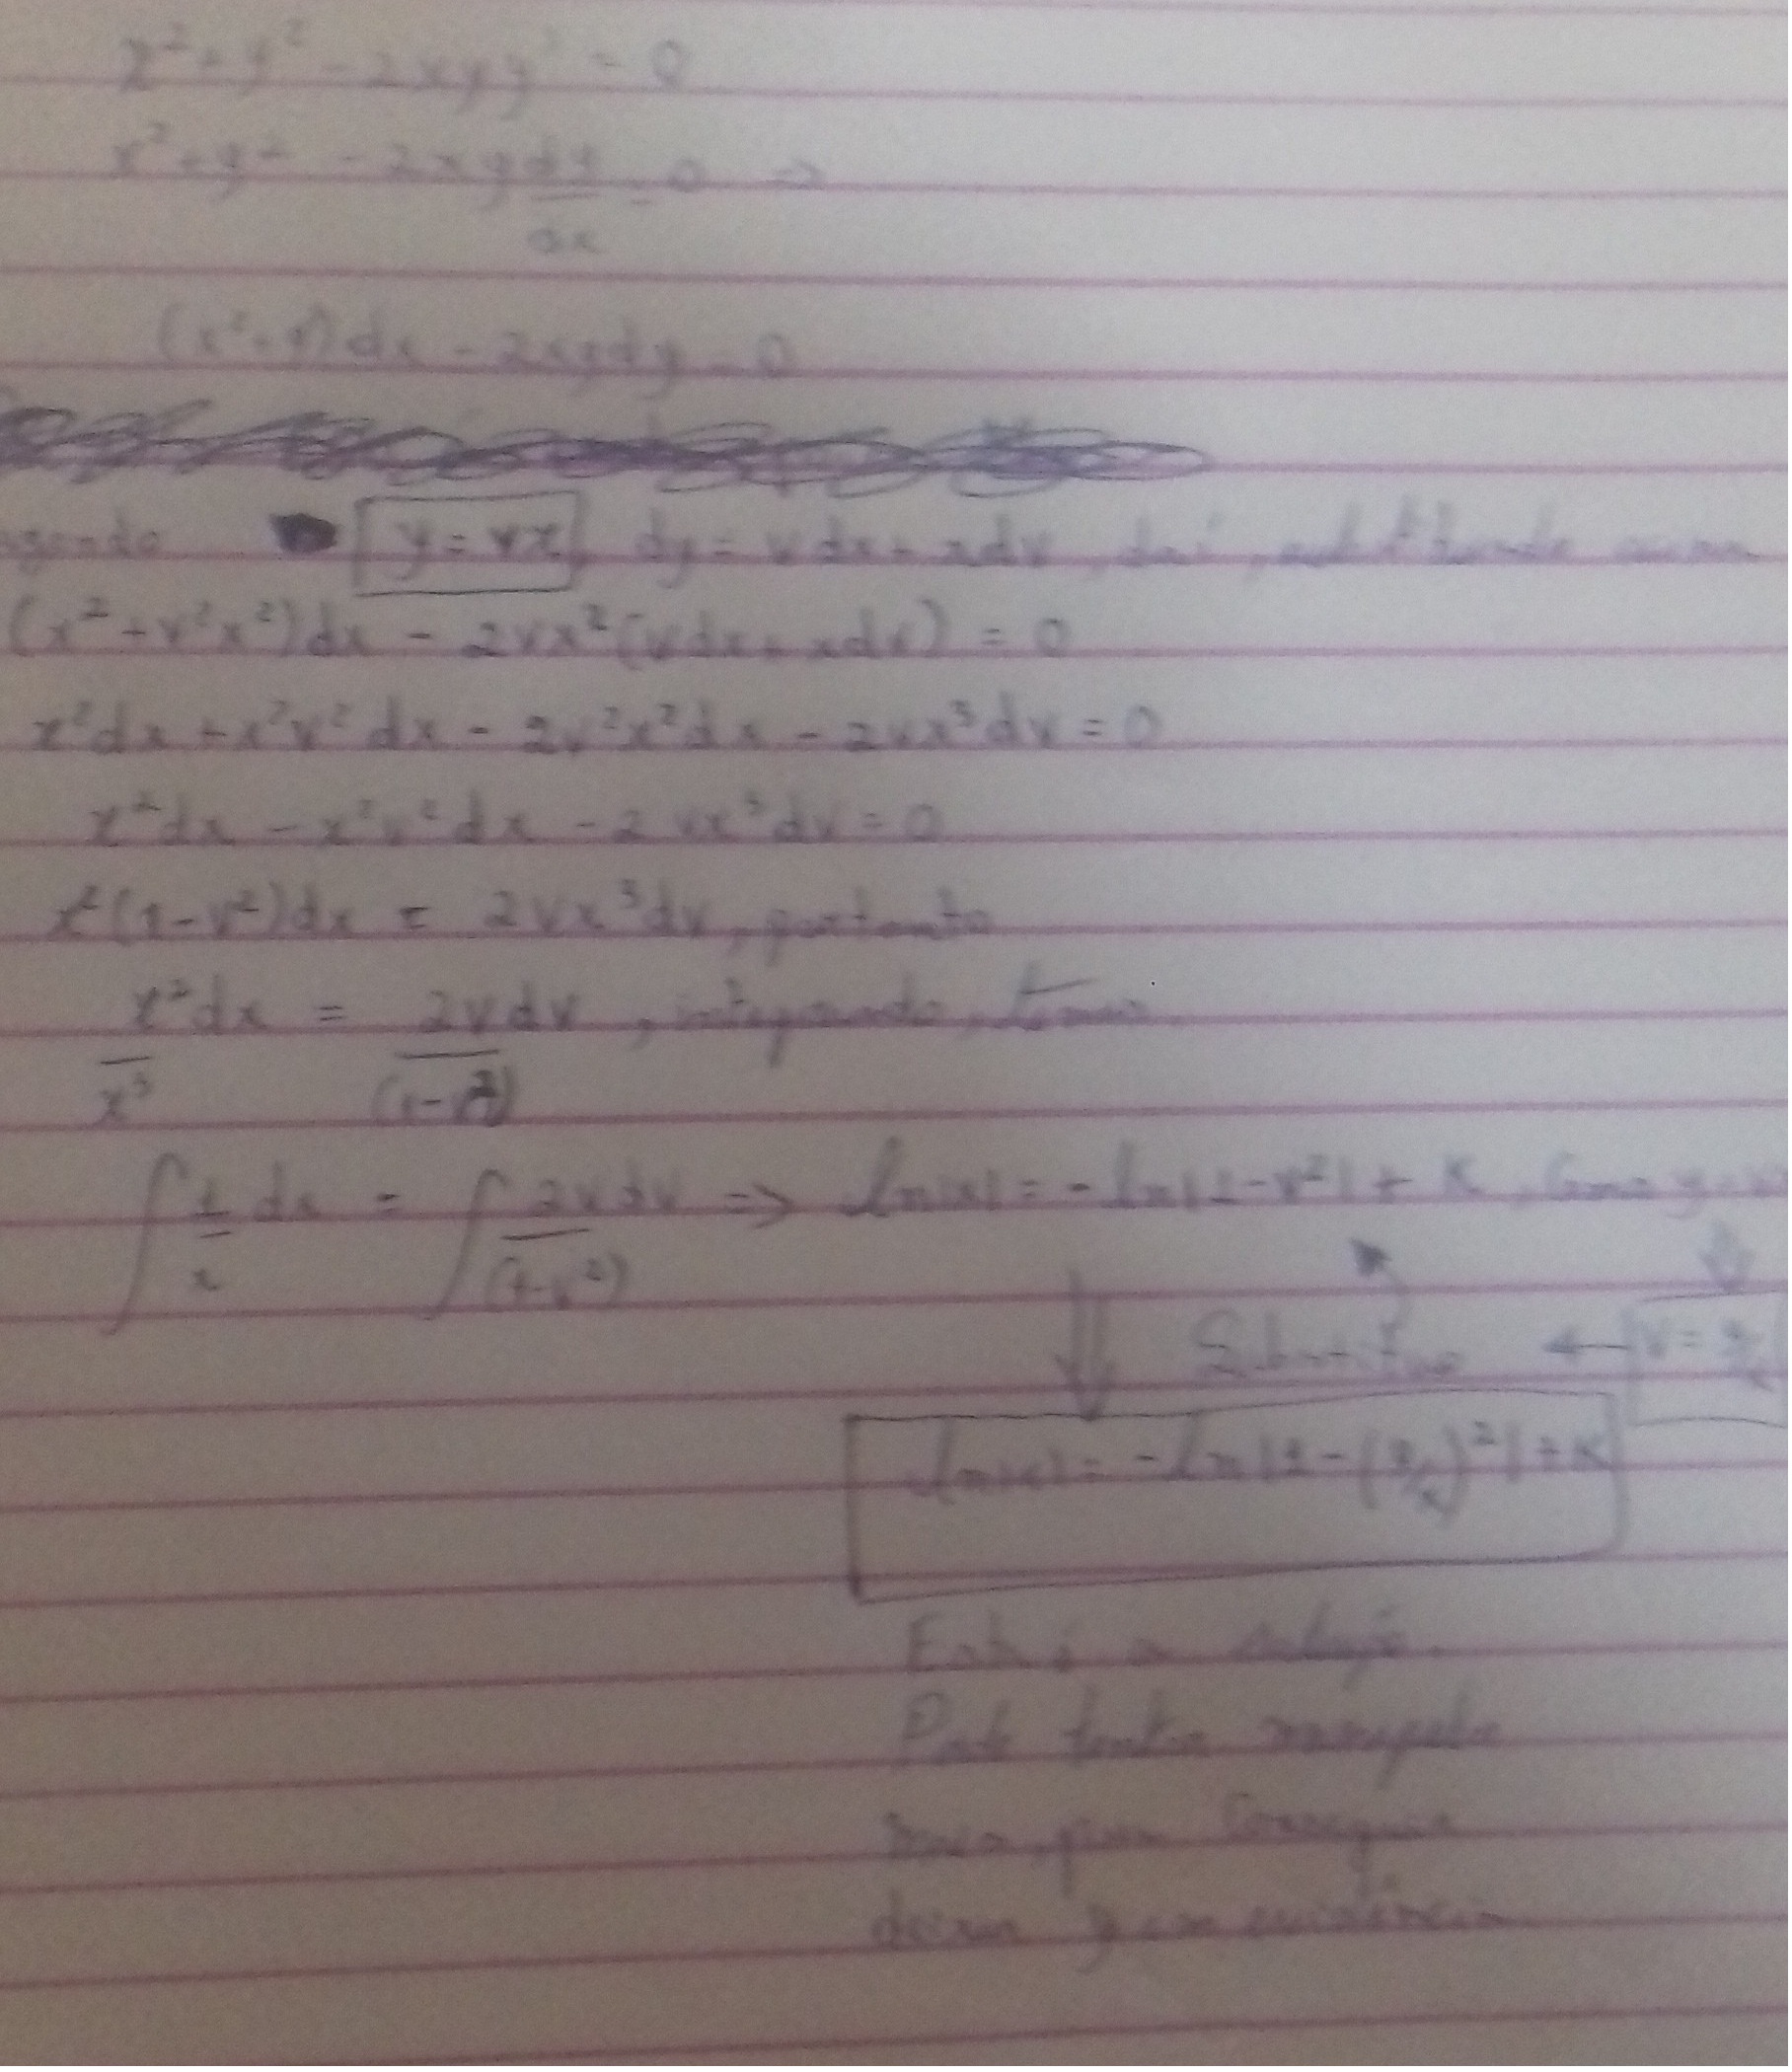 x² + y² - 2xyy' = 0
x² + y² - 2xy dy/dx = 0 ⇒
(x² + y²)dx - 2xydy = 0
y = vx dy = vdx + xdv, daí, substituindo acima
(x² + v²x²)dx - 2vx²(vdx + xdv) = 0
x²dx + x²v²dx - 2v²x²dx - 2vx³dv = 0
x²dx - x²v²dx - 2vx³dv = 0
x²(1-v²)dx = 2vx³dv, portanto
x²dx/x³ = 2vdv/(1-v²), integrando, temos
∫ 1/x dx = ∫ 2vdv/(1-v²) ⇒ ln|x| = -ln|1-v²| + K, Como y = v
⇓ Substituo ← v = y/x
ln|x| = -ln|1-(y/x)²| + K
Esta é a solução.
Pode tentar manipular
mais para Conseguir
deixar y em evidência